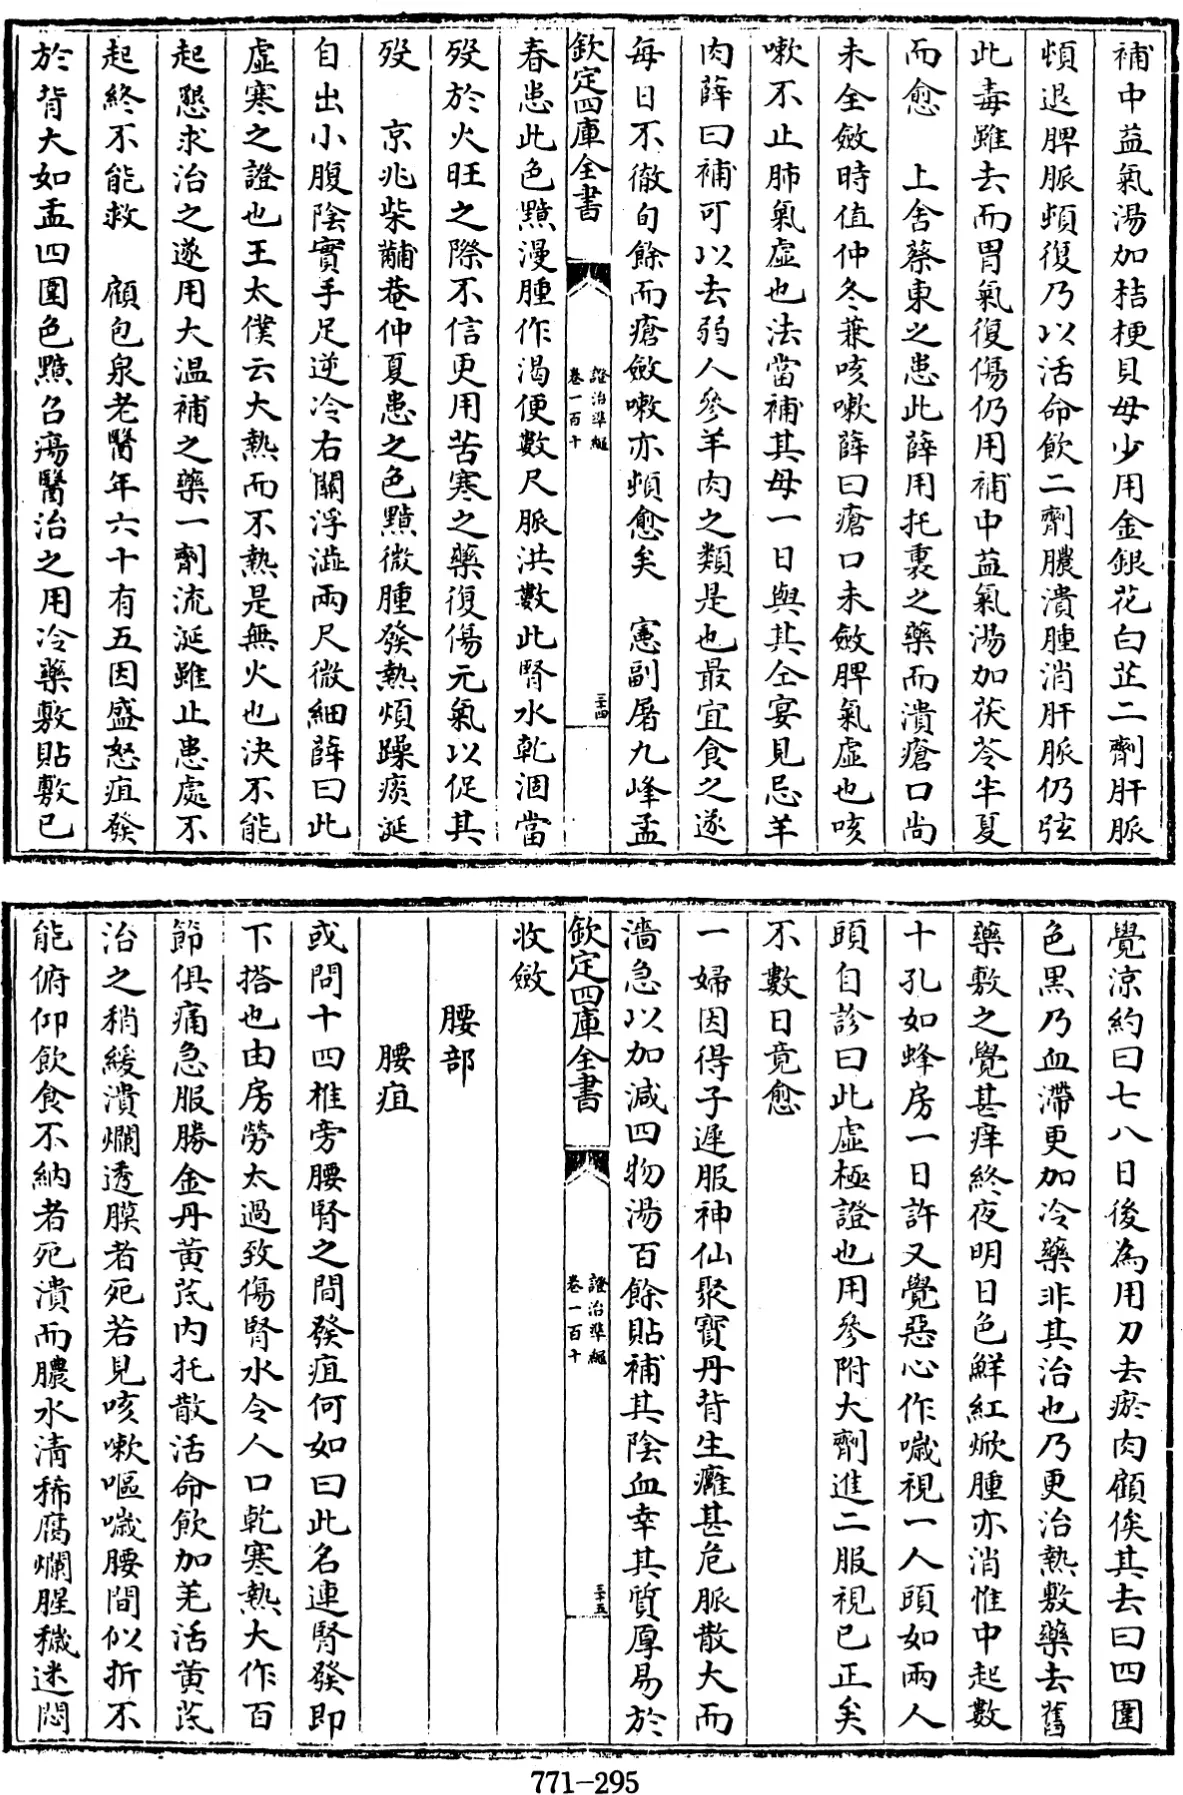 補中益氣湯加桔梗貝母少用金銀花白芷二劑肝脈
頓退脾脈頓復乃以活命飲二劑膿潰腫消肝脈仍弦
此毒雖去而胃氣復傷仍用補中益氣湯加茯苓半夏
而愈　上舍蔡東之患此薛用托裏之藥而潰瘡口尚
未全斂時值仲冬兼咳嗽薛曰瘡口未斂脾氣虛也咳
嗽不止肺氣虛也法當補其母一日與其仝宴見忌羊
肉薛曰補可以去弱人參羊肉之類是也最宜食之遂
每日不徹旬餘而瘡斂嗽亦頓愈矣　憲副屠九峰孟
欽定四庫全書
證治準繩
卷一百十
三十四
春患此色黯漫腫作渴便數尺脈洪數此腎水乾涸當
殁於火旺之際不信更用苦寒之藥復傷元氣以促其
殁　京兆柴黼菴仲夏患之色黯微腫發熱煩躁痰涎
自出小腹陰實手足逆冷右關浮澁兩尺微細薛曰此
虛寒之證也王太僕云大熱而不熱是無火也決不能
起懇求治之遂用大温補之藥一劑流涎雖止患處不
起終不能救　顧包泉老醫年六十有五因盛怒疽發
於背大如盂四圍色黯召瘍醫治之用冷藥敷貼敷已
覺涼約曰七八日後為用刀去瘀肉顧俟其去曰四圍
色黑乃血滯更加冷藥非其治也乃更治熱敷藥去舊
藥敷之覺甚痒終夜明日色鮮紅焮腫亦消惟中起數
十孔如蜂房一日許又覺惡心作噦視一人頭如兩人
頭自診曰此虛極證也用參附大劑進二服視已正矣
不數日竟愈
一婦因得子遲服神仙聚寶丹背生癰甚危脈散大而
濇急以加減四物湯百餘貼補其陰血幸其質厚易於
欽定四庫全書
證治準繩
卷一百十
三十五
收斂
腰部
腰疽
或問十四椎旁腰腎之間發疽何如曰此名連腎發即
下搭也由房勞太過致傷腎水令人口乾寒熱大作百
節俱痛急服勝金丹黃茋內托散活命飲加羌活黃茋
治之稍緩潰爛透膜者死若見咳嗽嘔噦腰間似折不
能俯仰飲食不納者死潰而膿水清稀腐爛腥穢迷悶
771-295